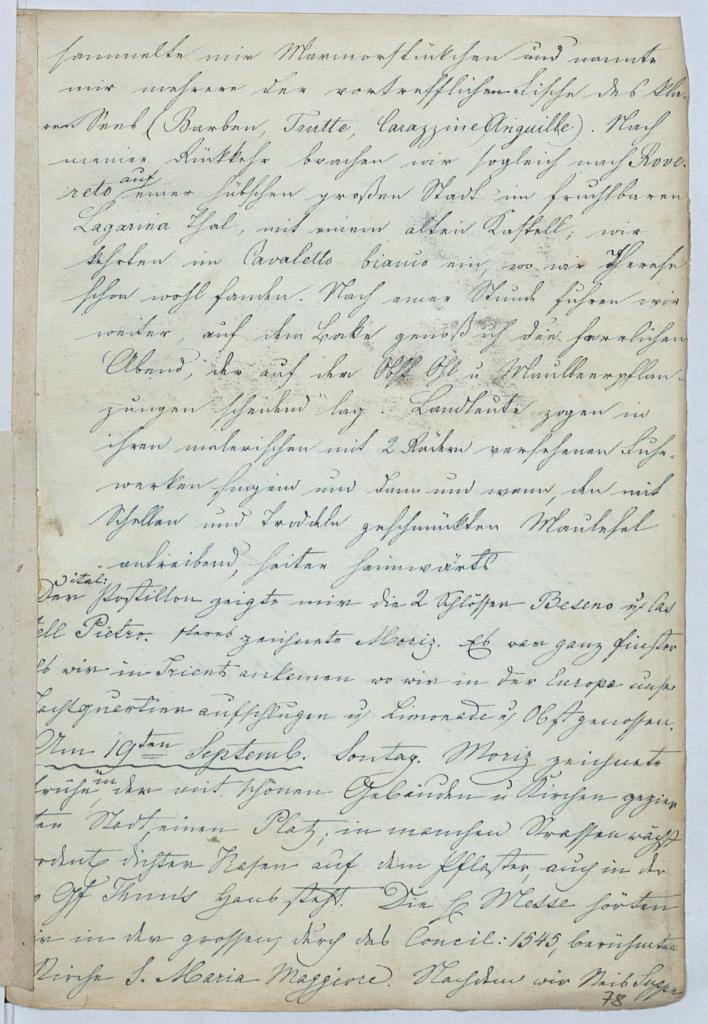 sammelte mir Marmorstückchen und nannte
mir mehrere der vortrefflichen Fische des kla-
ren Sees (Barben, Trutte, Carazzine Anguille). Nach
meiner Rückkehr brachen wir sogleich nach Rove-
reto auf einer hübschen großen Stadt im fruchtbaren
Lagarina Thal, mit einem alten Kastell; wir
kehrten im Cavaletto bianco ein, wo wir Therese
schon wohl fanden. Nach einer Stunde fuhren wir
weiter, auf dem Bocke genoß ich den herrlichen
Abend, der auf den Obst Öhl u Maulbeerpflan-
zungen scheidend lag. Landleute zogen in
ihren malerischen mit 2 Rädern versehenen Fuhr-
werken singend und dann und wann, den mit
Schellen und Troddeln geschmückten Maulesel
antreibend, heiter heimwärts
Der ital: Postillon zeigte mir die 2 Schlösser Beseno u Cas
tell Pietro. zeichnete Moriz. Es war ganz finster
als wir in Trient ankamen wo wir in der Europa unser
Nachtquartier aufschlugen u Limonade u Obst genossen.
Am 19ten Septemb. Sontag. Moriz zeichnete
frühe in der mit schönen Gebäuden u Kirchen gezier
ten Stadt, einen Platz; in manchen Strassen wächst
ordentl dichter Rasen auf dem Pflaster, auch in der
wo Gf Thun's Haus steht. Die H Messe hörten
wir in der grossen, durch das Concil: 1545, berühmten
Kirche S. Maria Maggiore. Nachdem wir Reis Suppe
78